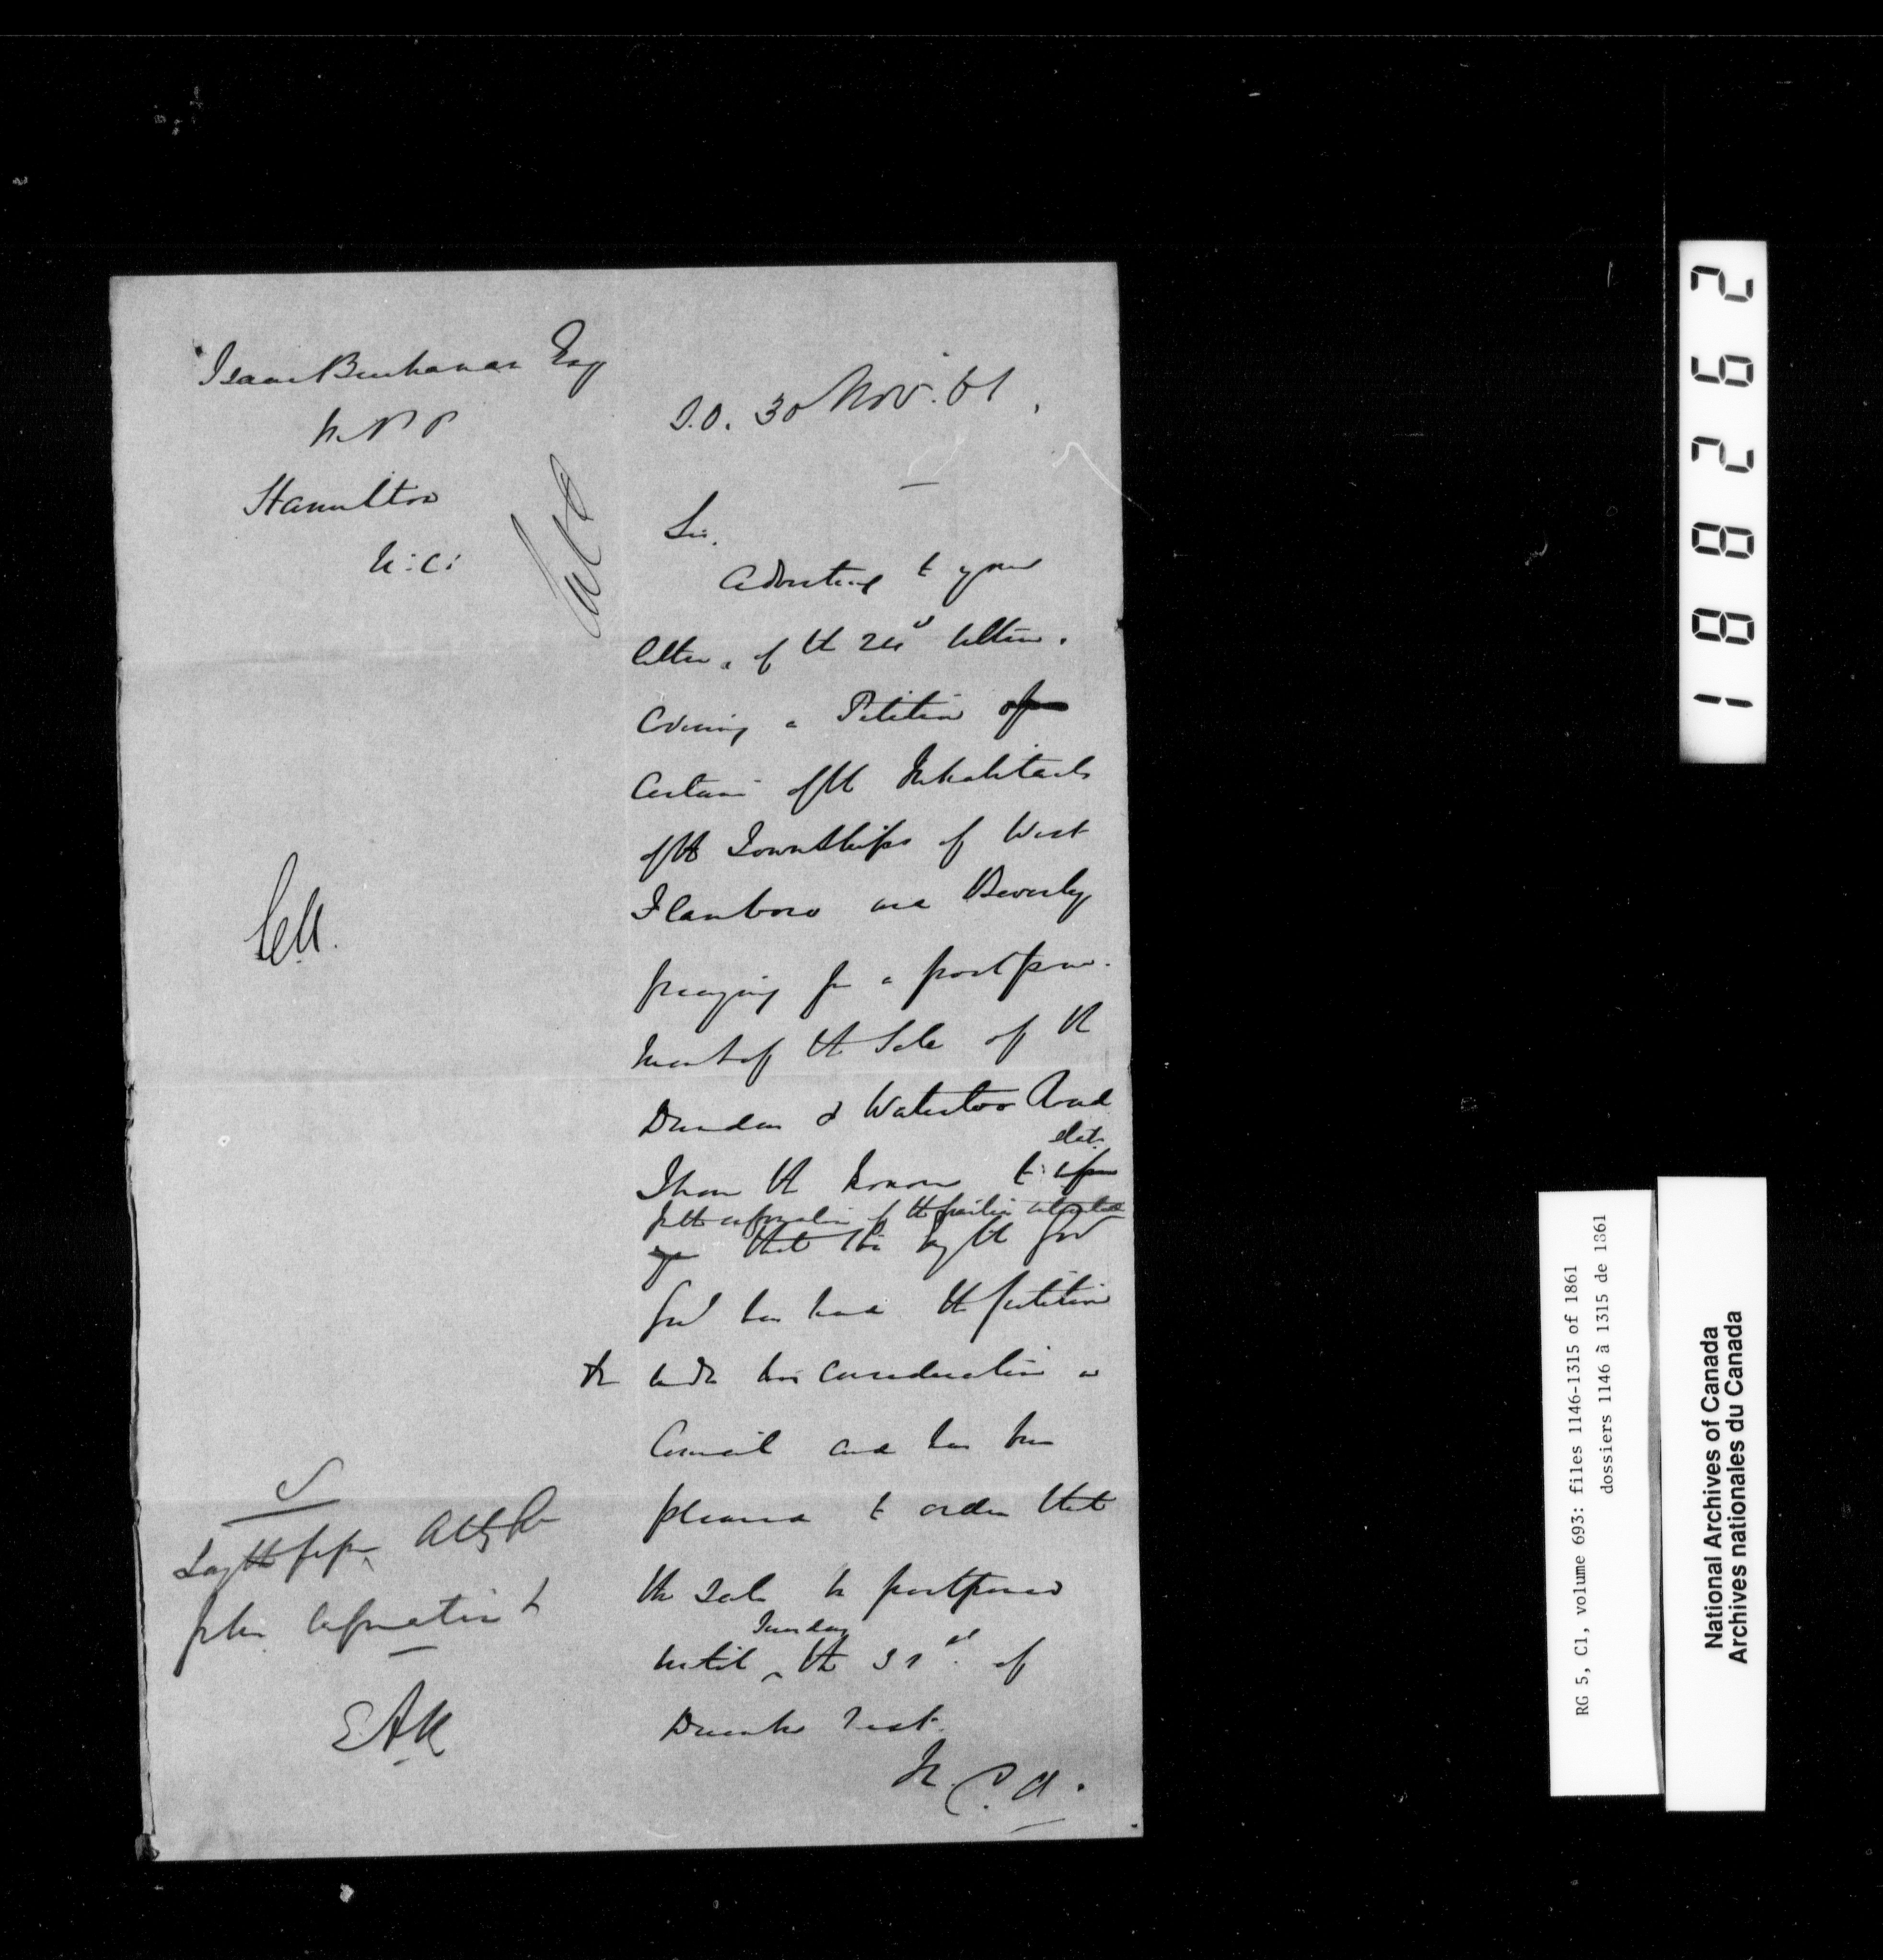 Isaac Buchanan Esq
M.P.P
Hamilton
U:C:
S.O. 30 Nov. 61.
Sir,
Adverting to your
letter, of the 24th ultimo.
Covering a Petition of
Certain of the Inhabitants
of the Townships of West
Flamboro and Beverly
praying for a postpone-
ment of the Sale of the
Dundas & Waterloo Road
state
I have the honor to
for the information of the parties interested
that His Exy the Gov
Genl has had the petition
under his consideration in
Council and has been
pleased to order that
the Sale be postponed
Tuesday
until the 31st. of
December next.
EAM
188262
RG 5, C1, volume 693: files 1146-1315 of 1861
dossiers 1146 à 1315 de 1861
National Archives of Canada
Archives nationales du Canada